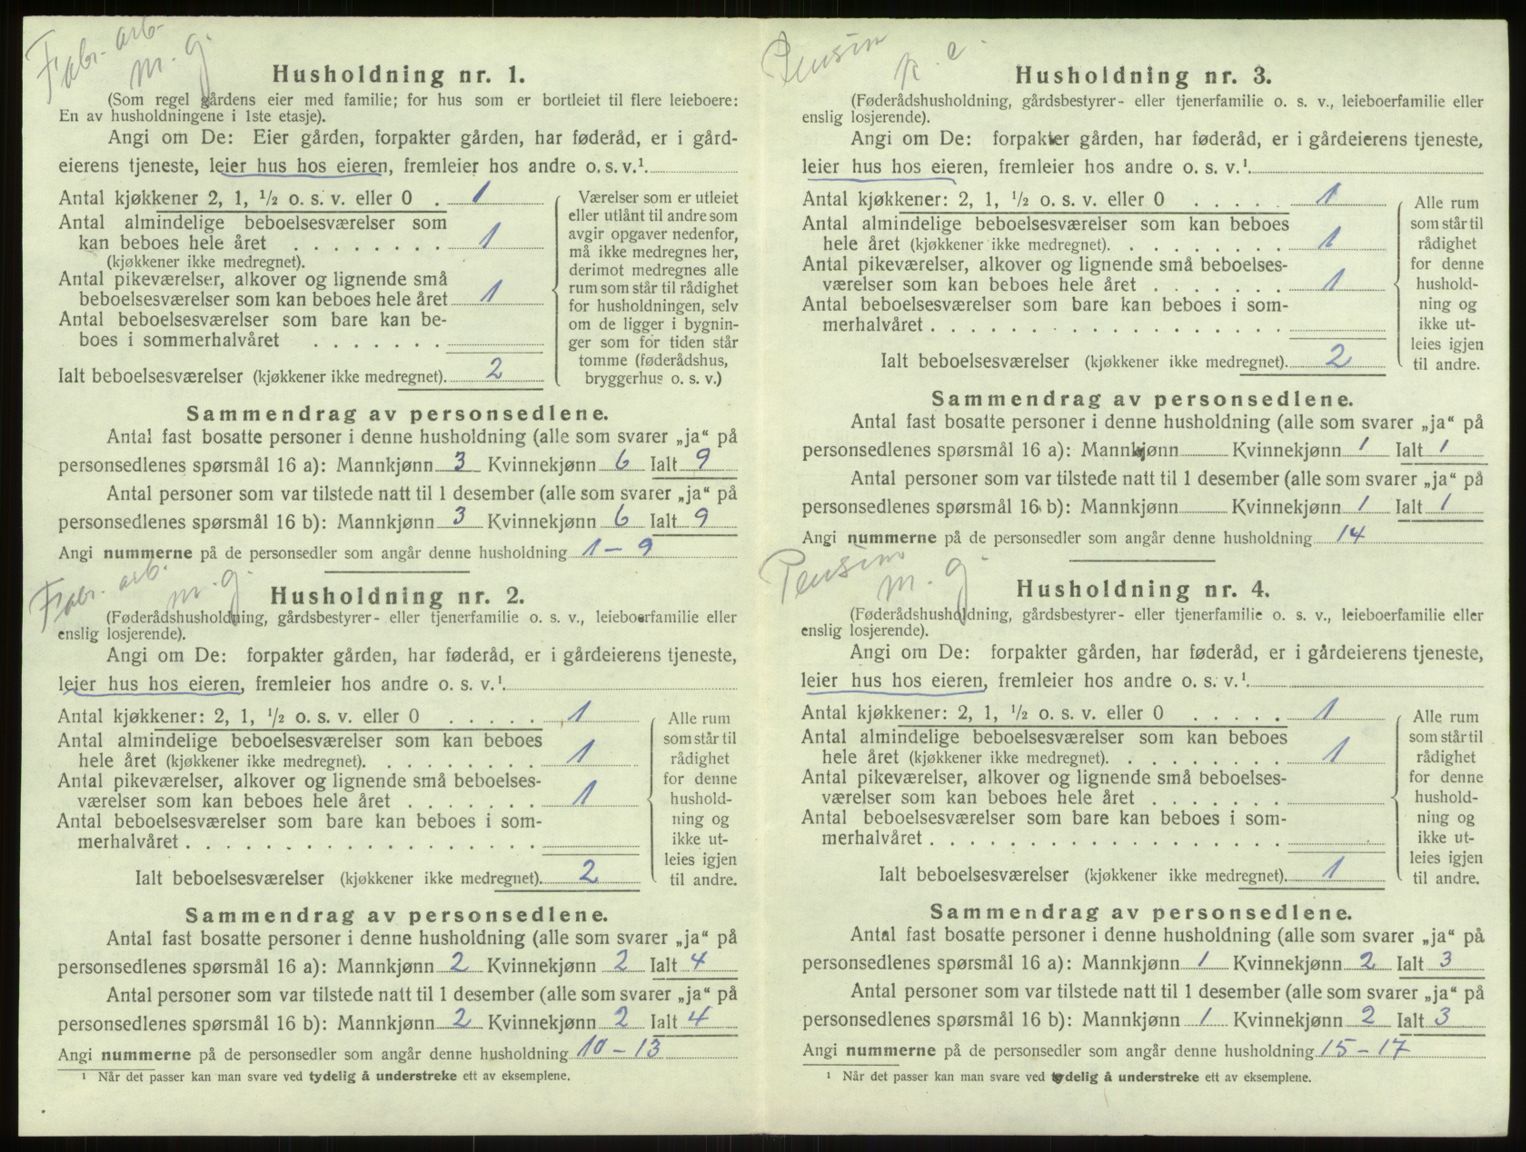 Fabr. arb.
m. g.
Husholdning nr. 1.
(Som regel gårdens eier med familie; for hus som er bortleiet til flere leieboere:
En av husholdningene i 1ste etasje).
Angi om De: Eier gården, forpakter gården, har føderåd, er i gård-
eierens tjeneste, leier hus hos eieren, fremleier hos andre o. s. v.¹
Antal kjøkkener 2, 1, ½ o. s. v. eller 0 . 1
Antal almindelige beboelsesværelser som
kan beboes hele året . . . . . . . . 1
(kjøkkener ikke medregnet).
Antal pikeværelser, alkover og lignende små
beboelsesværelser som kan beboes hele året 1
Antal beboelsesværelser som bare kan be-
boes i sommerhalvåret . . . . . . .
Ialt beboelsesværelser (kjøkkener ikke medregnet). 2
Værelser som er utleiet
eller utlånt til andre som
avgir opgaver nedenfor,
må ikke medregnes her,
derimot medregnes alle
rum som står til rådighet
for husholdningen, selv
om de ligger i bygnin-
ger som for tiden står
tomme (føderådshus,
bryggerhus o. s. v.)
Sammendrag av personsedlene.
Antal fast bosatte personer i denne husholdning (alle som svarer „ja“ på
personsedlenes spørsmål 16 a): Mannkjønn 3 Kvinnekjønn 6 Ialt 9
Antal personer som var tilstede natt til 1 desember (alle som svarer „ja“ på
personsedlenes spørsmål 16 b): Mannkjønn 3 Kvinnekjønn 6 Ialt 9
Angi nummerne på de personsedler som angår denne husholdning 1 – 9
Fabr. arb.
m. g.
Husholdning nr. 2.
(Føderådshusholdning, gårdsbestyrer- eller tjenerfamilie o. s. v., leieboerfamilie eller
enslig losjerende).
Angi om De: forpakter gården, har føderåd, er i gårdeierens tjeneste,
leier hus hos eieren, fremleier hos andre o. s. v.¹
Antal kjøkkener: 2, 1, ½ o. s. v. eller 0 . . . . . 1
Antal almindelige beboelsesværelser som kan beboes
hele året (kjøkkener ikke medregnet). . . . . . . . . 1
Antal pikeværelser, alkover og lignende små beboelses-
værelser som kan beboes hele året . . . . . . . 1
Antal beboelsesværelser som bare kan beboes i som-
merhalvåret . . . . . . . . . . . . . . . . . .
Ialt beboelsesværelser (kjøkkener ikke medregnet). 2
Alle rum
som står til
rådighet
for denne
hushold-
ning og
ikke ut-
leies igjen
til andre.
Sammendrag av personsedlene.
Antal fast bosatte personer i denne husholdning (alle som svarer „ja“ på
personsedlenes spørsmål 16 a): Mannkjønn 2 Kvinnekjønn 2 Ialt 4
Antal personer som var tilstede natt til 1 desember (alle som svarer „ja“ på
personsedlenes spørsmål 16 b): Mannkjønn 2 Kvinnekjønn 2 Ialt 4
Angi nummerne på de personsedler som angår denne husholdning 10 – 13
¹ Når det passer kan man svare ved tydelig å understreke ett av eksemplene.
Pensjon
k. e.
Husholdning nr. 3.
(Føderådshusholdning, gårdsbestyrer- eller tjenerfamilie o. s. v., leieboerfamilie eller
enslig losjerende).
Angi om De: forpakter gården, har føderåd, er i gårdeierens tjeneste,
leier hus hos eieren, fremleier hos andre o. s. v.¹
Antal kjøkkener: 2, 1, ½ o. s. v. eller 0 . . . . . 1
Antal almindelige beboelsesværelser som kan beboes
hele året (kjøkkener ikke medregnet). . . . . . . . . 1
Antal pikeværelser, alkover og lignende små beboelses-
værelser som kan beboes hele året . . . . . . . 1
Antal beboelsesværelser som bare kan beboes i som-
merhalvåret . . . . . . . . . . . . . . . . . .
Ialt beboelsesværelser (kjøkkener ikke medregnet). 2
Alle rum
som står til
rådighet
for denne
hushold-
ning og
ikke ut-
leies igjen
til andre.
Sammendrag av personsedlene.
Antal fast bosatte personer i denne husholdning (alle som svarer „ja“ på
personsedlenes spørsmål 16 a): Mannkjønn Kvinnekjønn 1 Ialt 1
Antal personer som var tilstede natt til 1 desember (alle som svarer „ja“ på
personsedlenes spørsmål 16 b): Mannkjønn Kvinnekjønn 1 Ialt 1
Angi nummerne på de personsedler som angår denne husholdning 14
Pensjon
m. g.
Husholdning nr. 4.
(Føderådshusholdning, gårdsbestyrer- eller tjenerfamilie o. s. v., leieboerfamilie eller
enslig losjerende).
Angi om De: forpakter gården, har føderåd, er i gårdeierens tjeneste,
leier hus hos eieren, fremleier hos andre o. s. v.¹
Antal kjøkkener: 2, 1, ½ o. s. v. eller 0 . . . . . 1
Antal almindelige beboelsesværelser som kan beboes
hele året (kjøkkener ikke medregnet). . . . . . . . . 1
Antal pikeværelser, alkover og lignende små beboelses-
værelser som kan beboes hele året . . . . . . .
Antal beboelsesværelser som bare kan beboes i som-
merhalvåret . . . . . . . . . . . . . . . . . .
Ialt beboelsesværelser (kjøkkener ikke medregnet). 1
Alle rum
som står til
rådighet
for denne
hushold-
ning og
ikke ut-
leies igjen
til andre.
Sammendrag av personsedlene.
Antal fast bosatte personer i denne husholdning (alle som svarer „ja“ på
personsedlenes spørsmål 16 a): Mannkjønn 1 Kvinnekjønn 2 Ialt 3
Antal personer som var tilstede natt til 1 desember (alle som svarer „ja“ på
personsedlenes spørsmål 16 b): Mannkjønn 1 Kvinnekjønn 2 Ialt 3
Angi nummerne på de personsedler som angår denne husholdning 15 – 17
¹ Når det passer kan man svare ved tydelig å understreke ett av eksemplene.